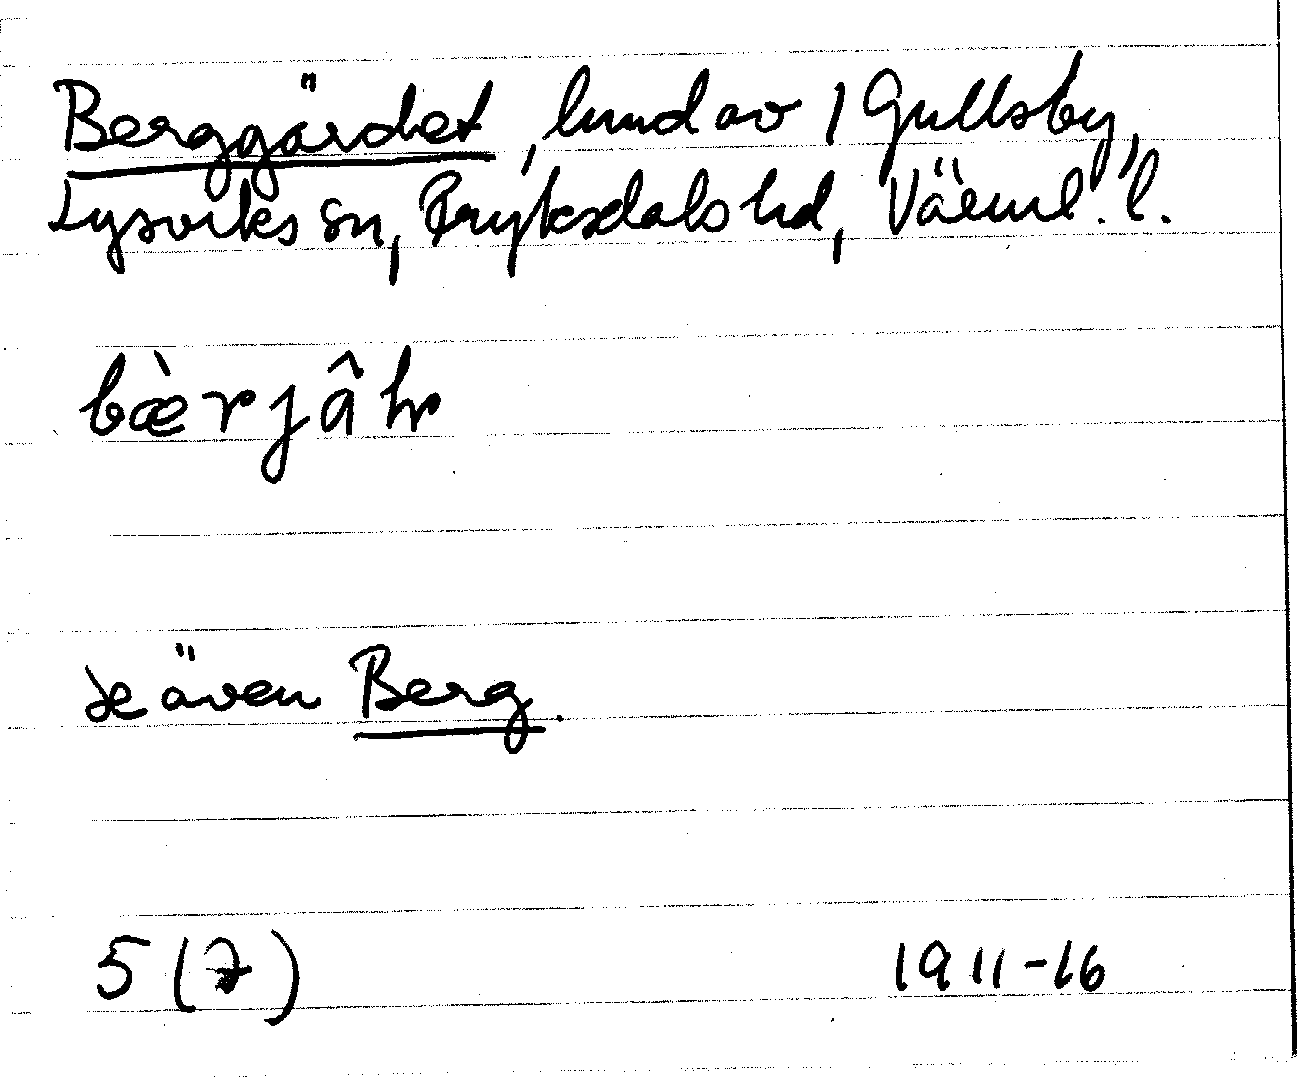 Berggärdet, lmd av 1 Gullsby,
Lysviks sn, Fryksdals hd, Värml. l.
bæ̀rjâ
Se även Berg.
5 (7)
1911-16